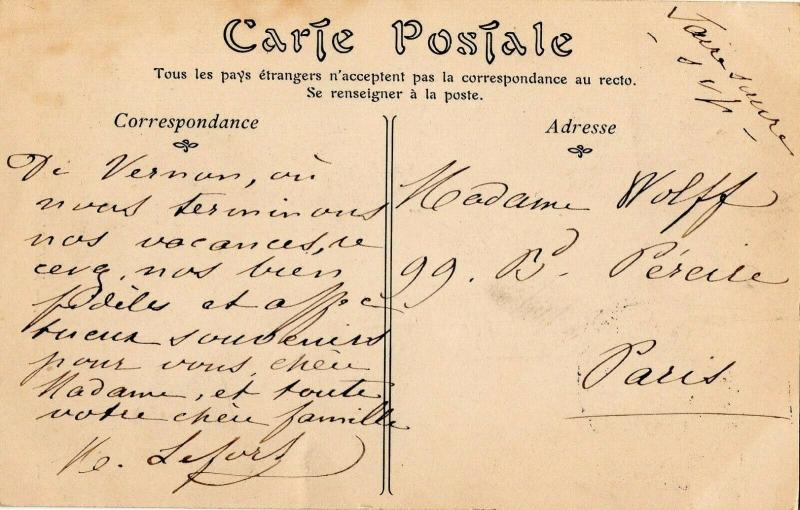 Carte Postale
Tous les pays étrangers n'acceptent pas la correspondance au recto.
Se renseigner à la poste.
Faire suivre
s v p
Correspondance
De Vernon, où
nous terminons
nos vacances, re
cevez, nos bien
fidèles et affec
tueux souvenirs
pour vous, chère
Madame, et toute
votre chère famille
Lefort
Adresse
Madame Wolff
99. Bd. Péreire
Paris